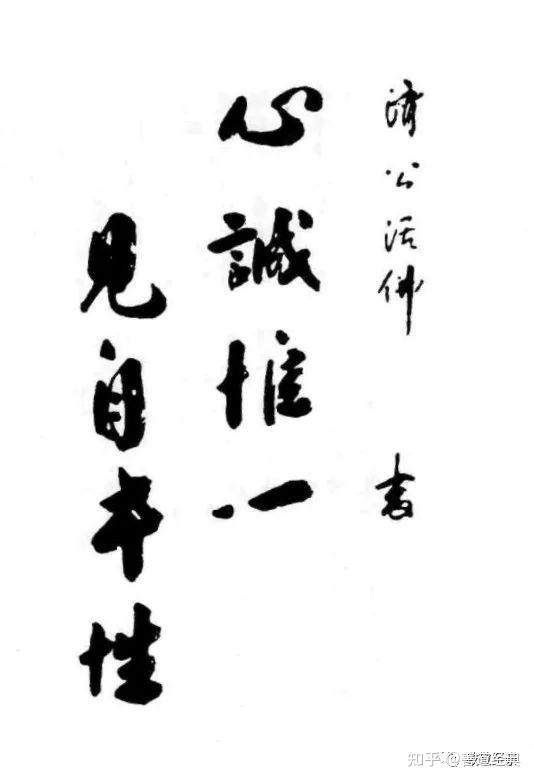 濟公活佛 書
心誠惟一
見自本性
知乎 @善道经典